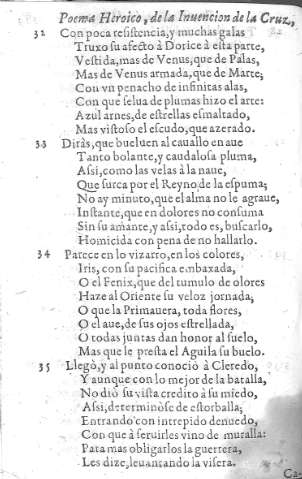 Poema Heroico, de la Inuencion de la Cruz,
32 Con poca resistencia, y muchas galas
Truxo su afecto à Dorice à esta parte,
Vestida, mas de Venus, que de Palas,
Mas de Venus armada, que de Marte;
Con vn penacho de infinitas alas,
Con que selua de plumas hizo el arte:
Azul arnes, de estrellas esmaltado,
Mas vistoso el escudo, que azerado.
33 Diràs, que bueluen al cauallo en aue
Tanto bolante, y caudalosa pluma,
Assi, como las velas à la naue,
Que surca por el Reyno de la espuma;
No ay minuto, que el alma no le agraue,
Instante, que en dolores no consuma
Sin su amante, y assi, todo es, buscarlo,
Homicida con pena de no hallarlo.
34 Parece en lo vizarro, en los colores,
Iris, con su pacifica embaxada,
O el Fenix, que del tumulo de olores
Haze al Oriente su veloz jornada;
O que la Primauera, toda flores,
O el aue, de sus ojos estrellada,
O todas juntas dan honor al suelo,
Mas que le presta el Aguila su buelo.
35 Llegò, y al punto conociò à Cleredo,
Y aunque con lo mejor de la batalla,
No diò su vista credito à su miedo,
Assi, determinòse de estorballa;
Entrando con intrepido denuedo,
Con que à seruirles vino de muralla:
Para mas obligarlos la guerrera,
Les dize, leuantando la visera.